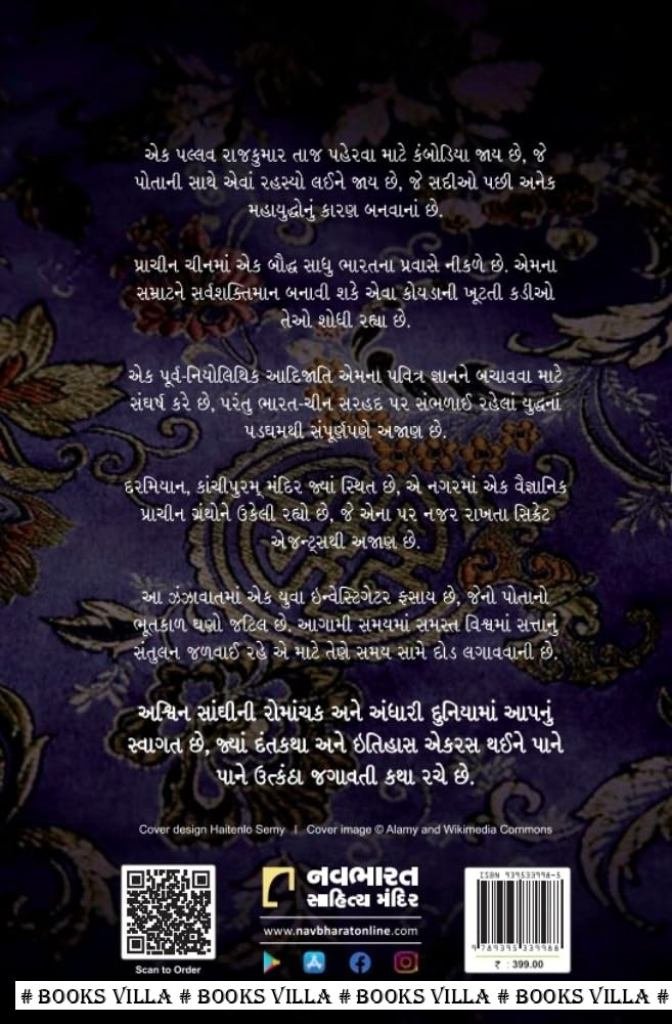 એક પલ્લવ રાજકુમાર તાજ પહેરવા માટે કંબોડિયા જાય છે, જે
પોતાની સાથે એવાં રહસ્યો લઈને જાય છે, જે સદીઓ પછી અનેક
મહાયુદ્ધોનું કારણ બનવાનાં છે.
પ્રાચીન ચીનમાં એક બૌદ્ધ સાધુ ભારતના પ્રવાસે નીકળે છે. એમના
સમ્રાટને સર્વશક્તિમાન બનાવી શકે એવા કોયડાની ખૂટતી કડીઓ
તેઓ શોધી રહ્યા છે.
એક પૂર્વ-નિયોલિથિક આદિજાતિ એમના પવિત્ર જ્ઞાનને બચાવવા માટે
સંઘર્ષ કરે છે, પરંતુ ભારત-ચીન સરહદ પર સંભળાઈ રહેલાં યુદ્ધનાં
પડઘમથી સંપૂર્ણપણે અજાણ છે.
દરમિયાન, કાંચીપુરમ્ મંદિર જ્યાં સ્થિત છે, એ નગરમાં એક વૈજ્ઞાનિક
પ્રાચીન ગ્રંથોને ઉકેલી રહ્યો છે, જે એના પર નજર રાખતા સિક્રેટ
એજન્ટ્સથી અજાણ છે.
આ ઝંઝાવાતમાં એક યુવા ઇન્વેસ્ટિગેટર ફસાય છે, જેનો પોતાનો
ભૂતકાળ ઘણો જટિલ છે. આગામી સમયમાં સમસ્ત વિશ્વમાં સત્તાનું
સંતુલન જળવાઈ રહે એ માટે તેણે સમય સામે દોડ લગાવવાની છે.
અશ્વિન સાંઘીની રોમાંચક અને અંધારી દુનિયામાં આપનું
સ્વાગત છે, જ્યાં દંતકથા અને ઇતિહાસ એકરસ થઈને પાને
પાને ઉત્કંઠા જગાવતી કથા રચે છે.
Cover design Haitenlo Semy I Cover image © Alamy and Wikimedia Commons
નવભારત
સાહિત્ય મંદિર
www.navbharatonline.com
Scan to Order
ISBN 939533998-5
9 789395 339988
₹ : 399.00
# BOOKS VILLA # BOOKS VILLA # BOOKS VILLA # BOOKS VILLA #